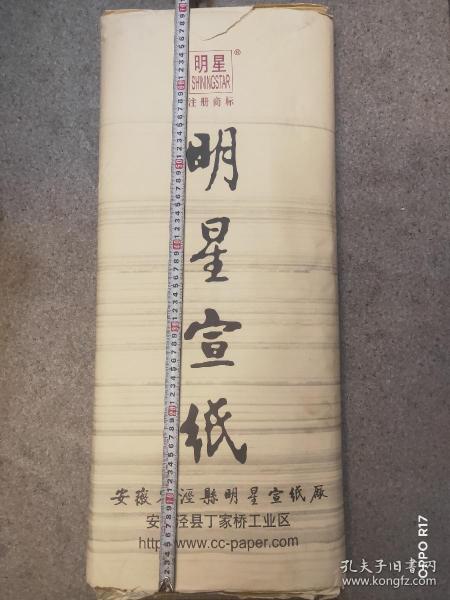 明星®
SHININGSTAR
注册商标
明星宣纸
安徽 涇縣明星宣纸厰
安 泾县丁家桥工业区
http www.cc-paper.com
OPPO R17
孔夫子旧书网
book.kongfz.com